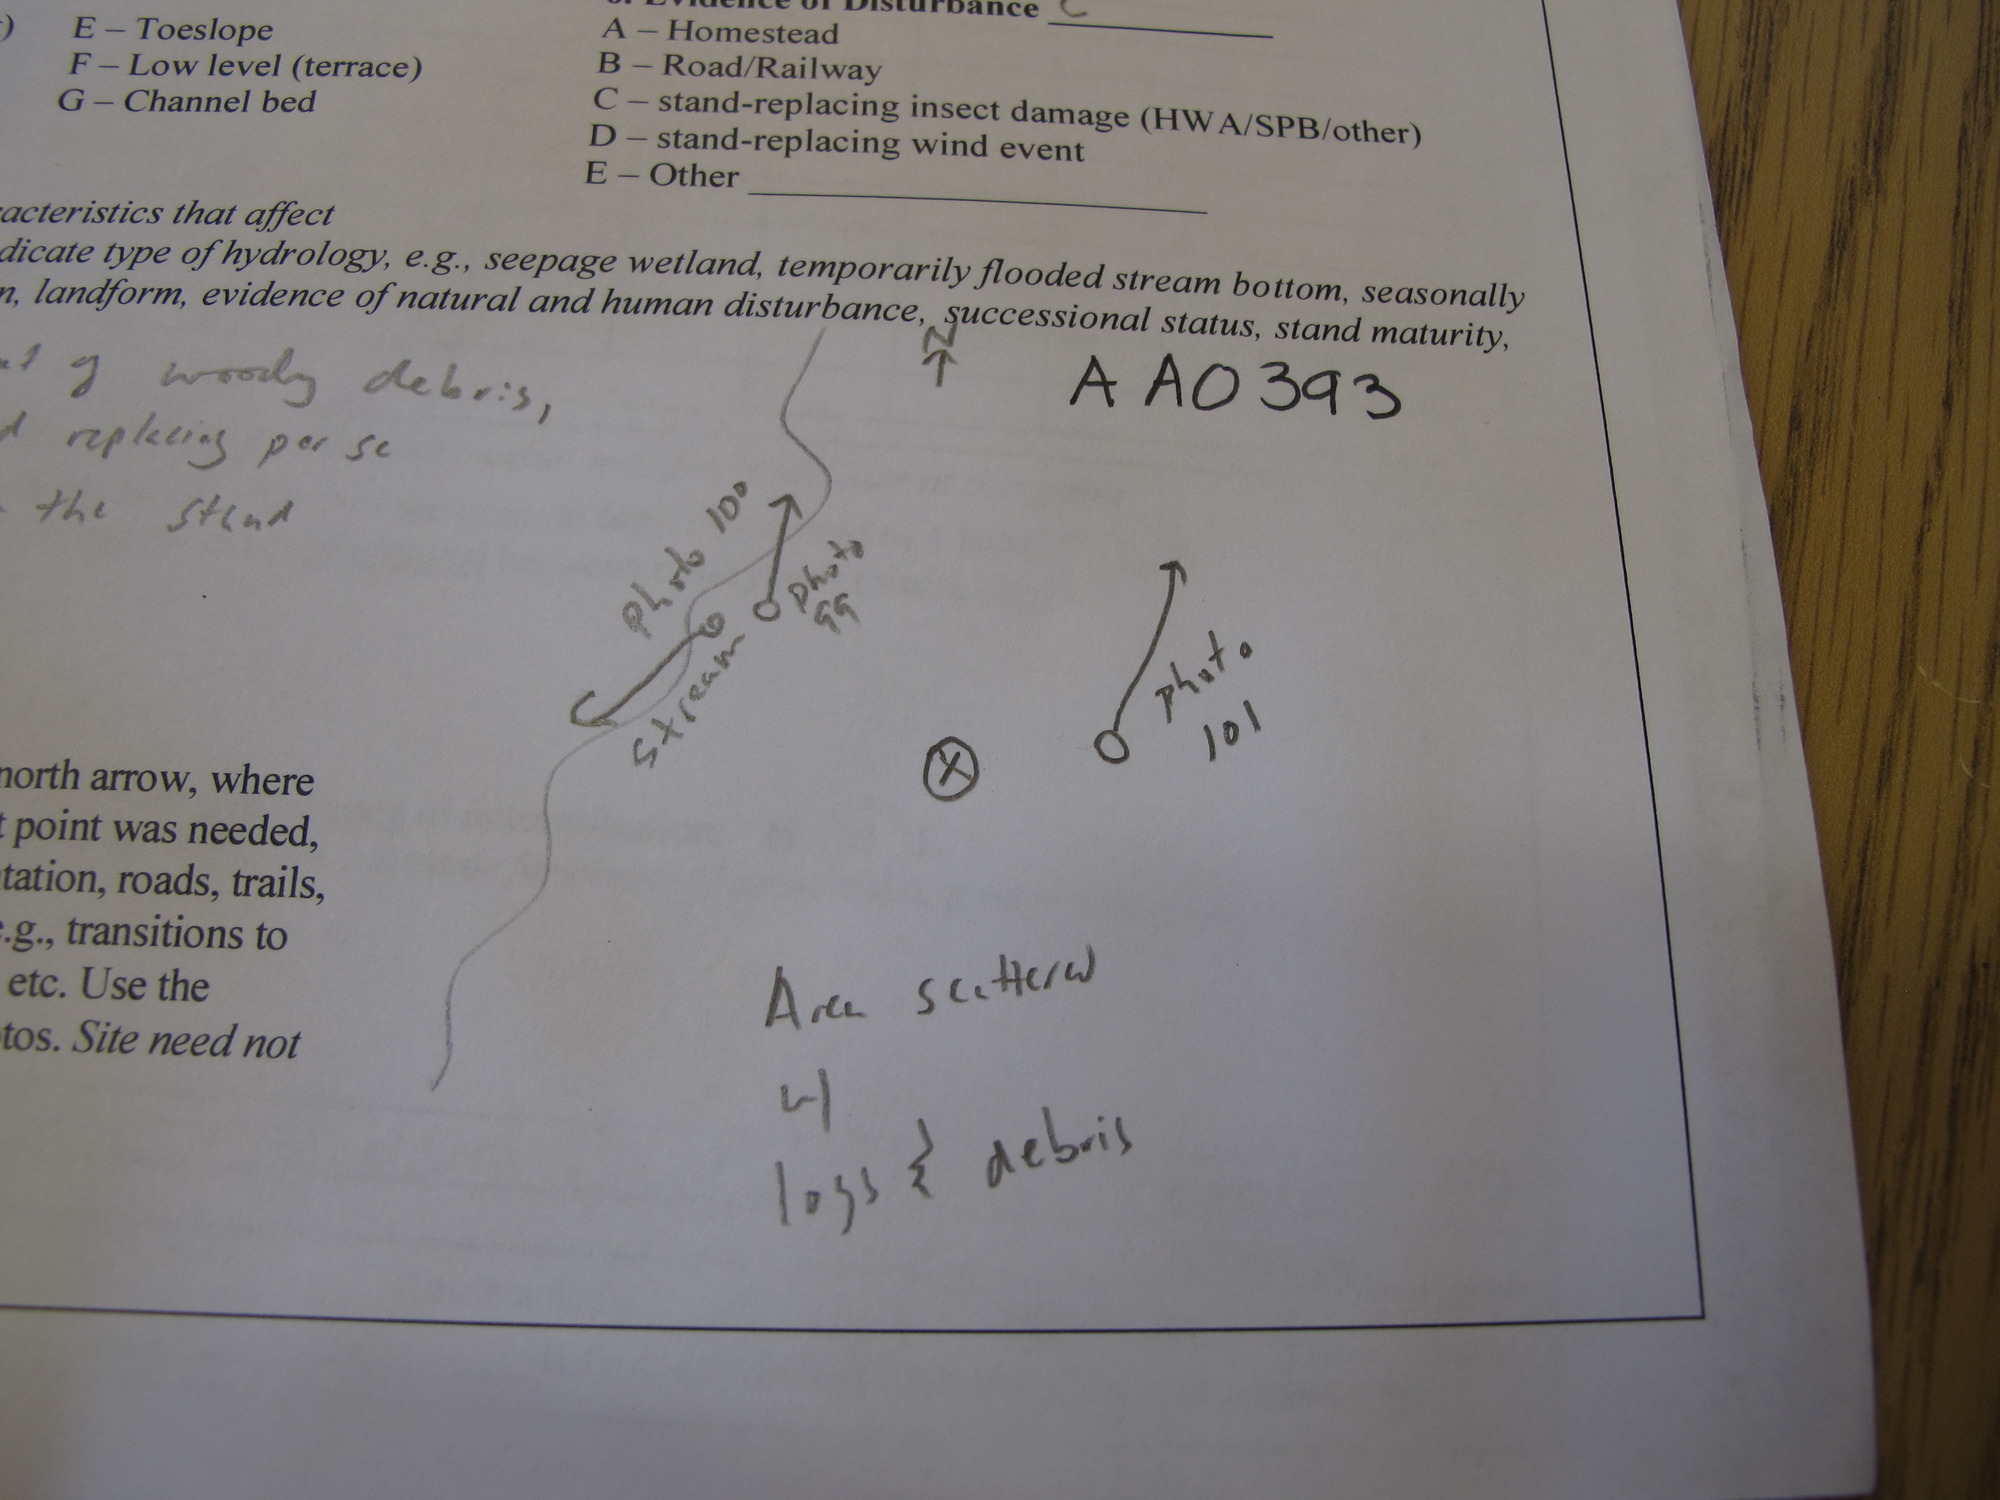 ) E – Toeslope
F – Low level (terrace)
G – Channel bed
Evidence of Disturbance C
A – Homestead
B – Road/Railway
C – stand-replacing insect damage (HWA/SPB/other)
D – stand-replacing wind event
E – Other
acteristics that affect
dicate type of hydrology, e.g., seepage wetland, temporarily flooded stream bottom, seasonally
n, landform, evidence of natural and human disturbance, successional status, stand maturity,
N
AA0393
of woody debris,
replacing per se
the stand
photo 100
photo
99
stream
photo
101
X
north arrow, where
t point was needed,
tation, roads, trails,
e.g., transitions to
etc. Use the
tos. Site need not
Area scattered
w/
logs & debris